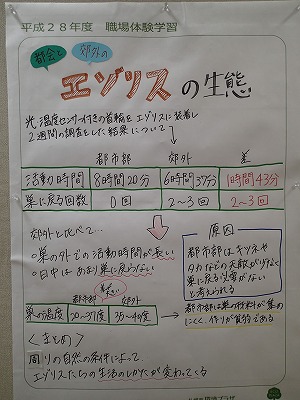 平成28年度 職場体験学習
都会と 郊外の
エゾリスの生態
光、温度センサー付きの首輪をエゾリスに装着し
2週間の調査をした結果について
都市部 郊外 差
活動時間 8時間20分 6時間37分 1時間43分
巣に戻る回数 0回 2~3回 2~3回
郊外と比べて…
○巣の外での活動時間が長い
○日中はあまり巣に戻らない
原因
都市部はキツネや
タカなどの天敵が少なく
巣に戻る必要がない
と考えられる
都市部 郊外
巣の温度 20~37度 35~40度
都市部は巣の材料が集め
にくく、作りが貧弱である
<まとめ>
周りの自然の条件によって、
エゾリスたちの生活のしかたが変わってくる
環境プラザ